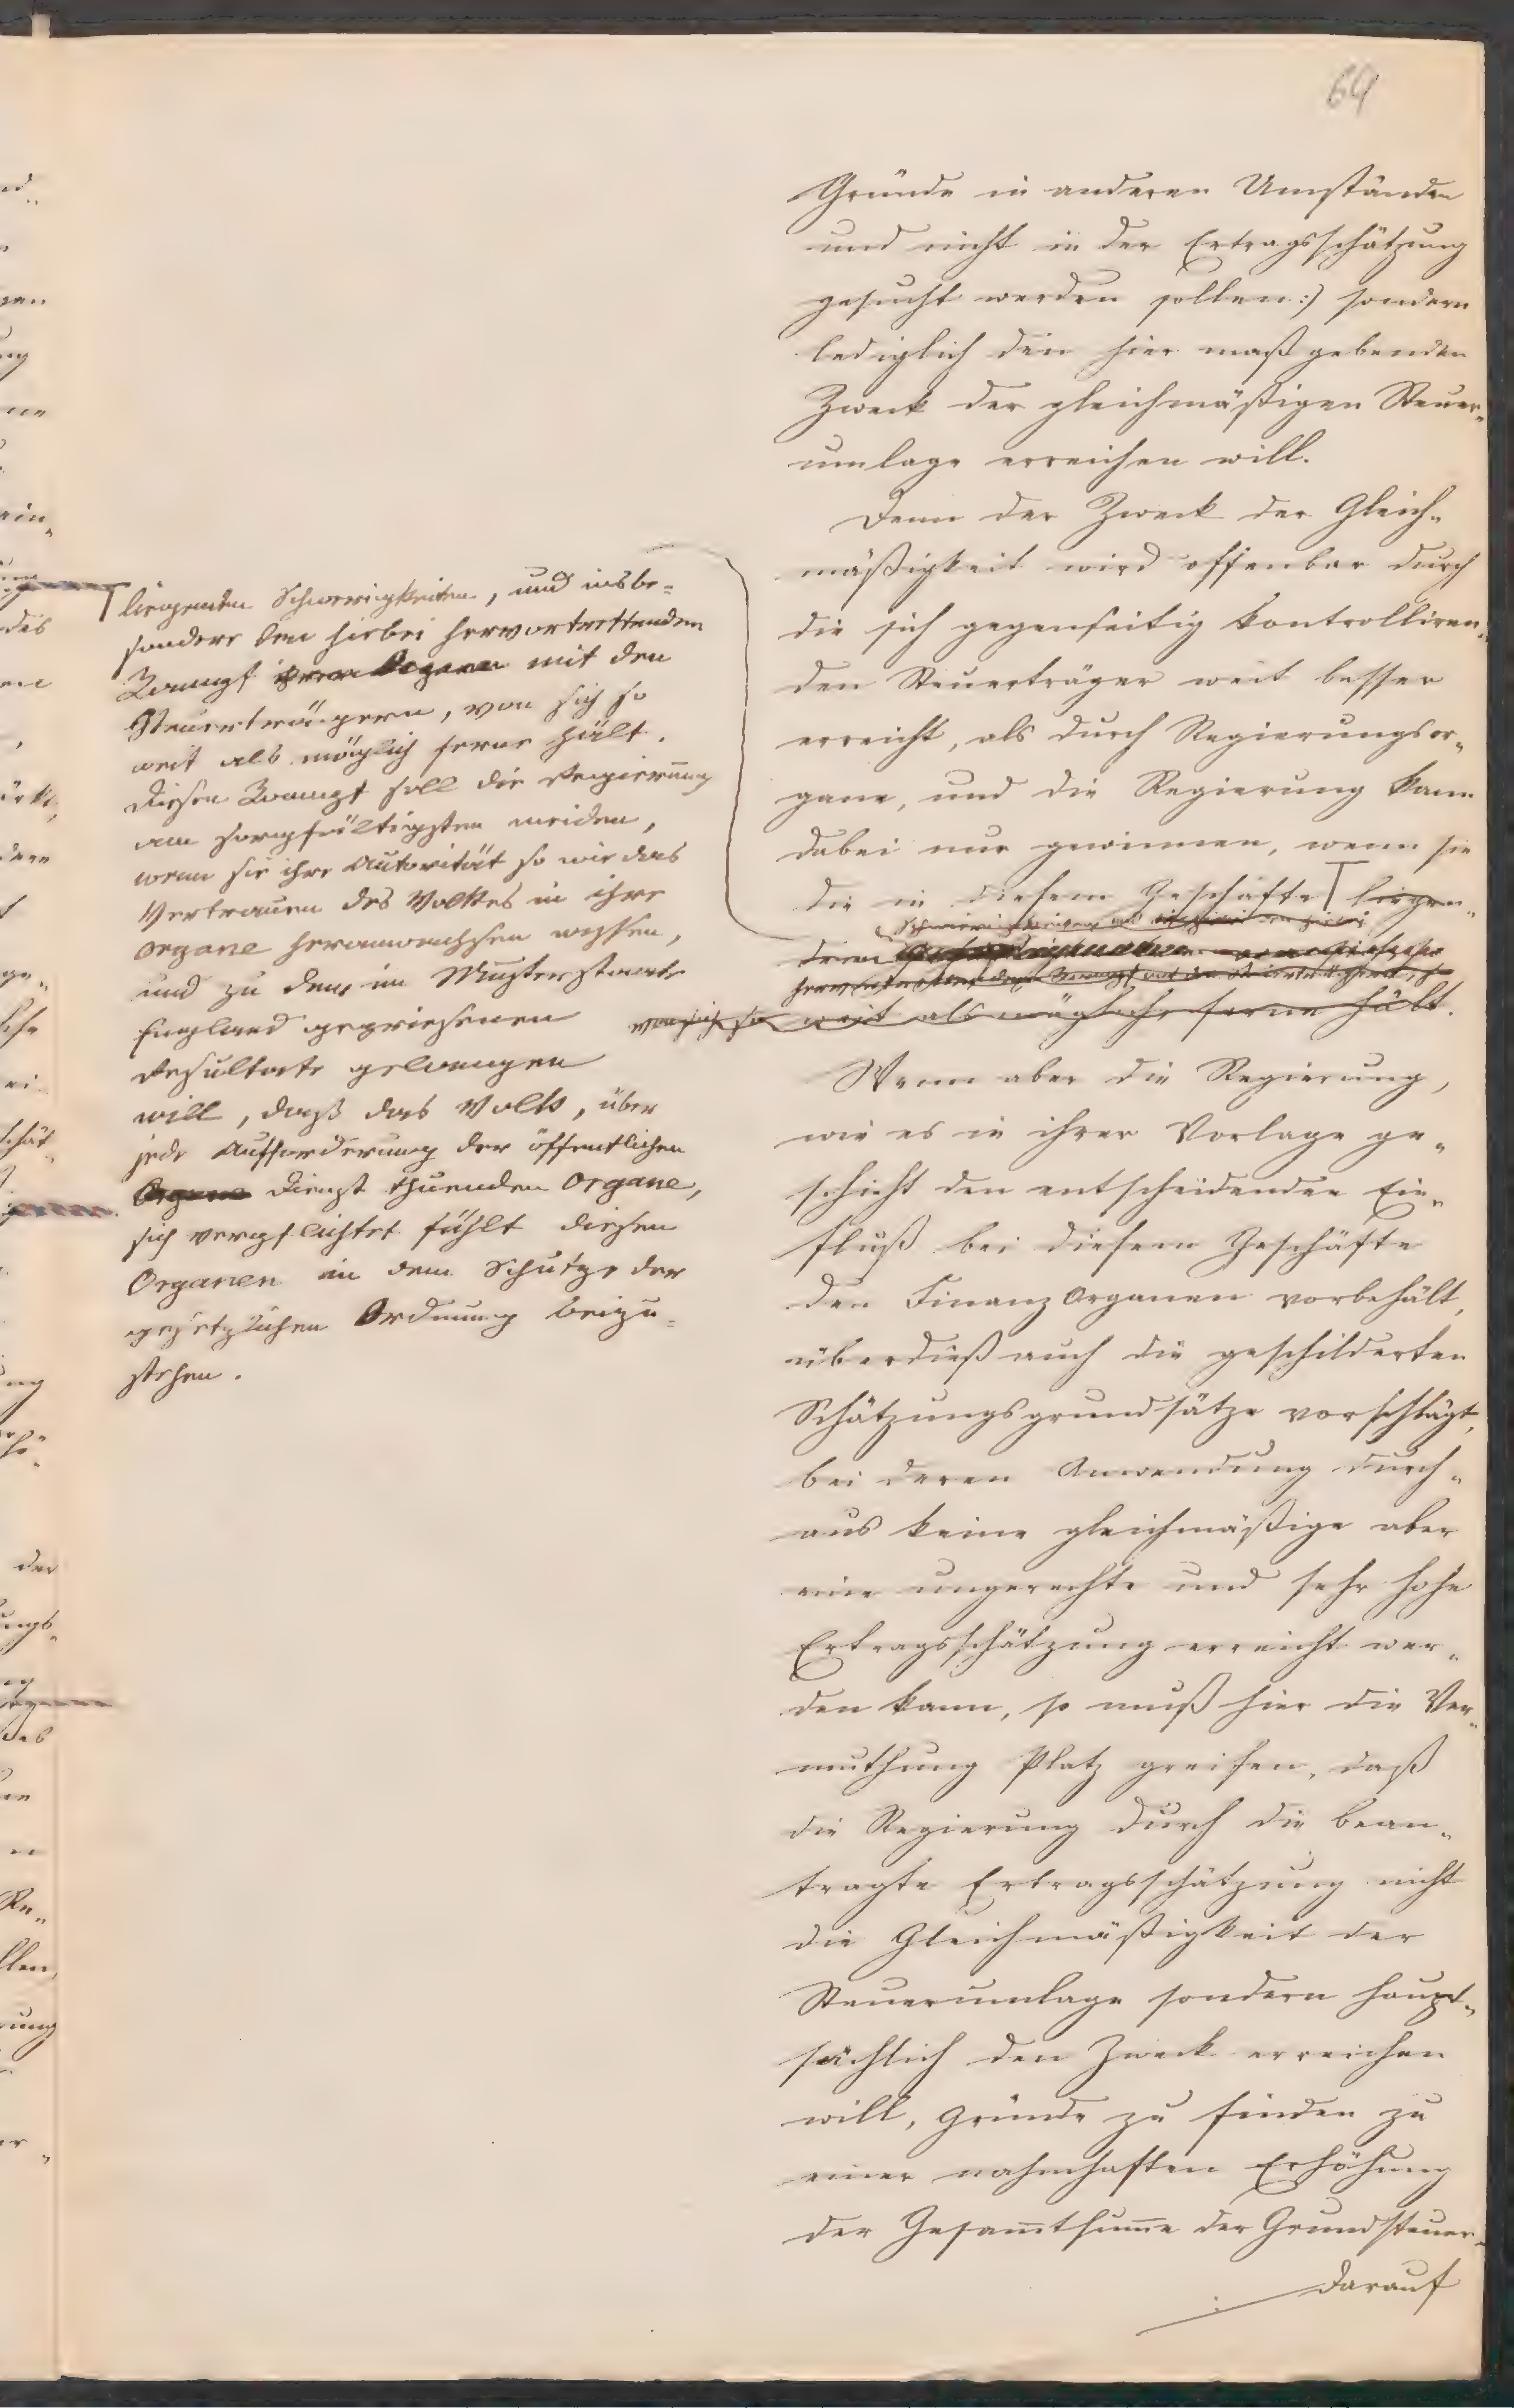 64
Gründe in anderen Umständen
und nicht in der Ertragsschätzung
gesucht werden sollen:) sondern
lediglich den hier maßgebenden
Zweck der gleichmäßigen Steuer„
umlage erreichen will.
Denn der Zweck der Gleich„
mäßigkeit wird offenbar durch
die sich gegenseitig kontrolliren„
den Steuerträger weit besser
erreicht, als durch Regierungsor„
gane, und die Regierung kann
dabei nur gewinnen, wenn sie
die in diesem Geschäfte liegen„
den
Schwierigkeiten und
hervortretenden Kampf mit den Steuerträgern, so
von sich so weit als möglich ferne hält.
liegenden Schwierigkeiten, und insbe=
sondere den hiebei hervortrettenden
Kampf ihrer Organe mit den
Steuerträgern, von sich so
weit als möglich ferne hält.
Diesen Kampf soll die Regierung
am sorgfältigsten meiden,
wenn sie ihre Autorität so wie das
Vertrauen des Volkes in ihre
Organe heranwachsen wissen,
und zu dem im Musterstaate
England gepriesenen
Resultate gelangen
will, daß das Volk, über
jede Aufforderung der öffentlichen
Organe Dienst thuenden Organe,
sich verpflichtet fühlt diesen
Organen in dem Schutze der
gesetzlichen Ordnung beizu=
stehen.
Wenn aber die Regierung,
wie es in ihrer Vorlage ge„
schieht den entscheidenden Ein„
fluß bei diesem Geschäfte
den Finanz Organen vorbehält,
überdieß auch die geschilderten
Schätzungsgrundsätze vorschlägt,
bei deren Anwendung durch„
aus keine gleichmäßige aber
eine ungerechte und sehr hohe
Ertragsschätzung erreicht wer„
den kann, so muß hier die Ver„
muthung Platz greifen, daß
die Regierung durch die bean„
tragte Ertragsschätzung nicht
die Gleichmäßigkeit der
Steuerumlage sondern haupt„
sächlich den Zweck erreichen
will, Gründe zu finden zu
einer nahmhaften Erhöhung
der Gesam̅tsum̅e der Grundsteuer.
Darauf